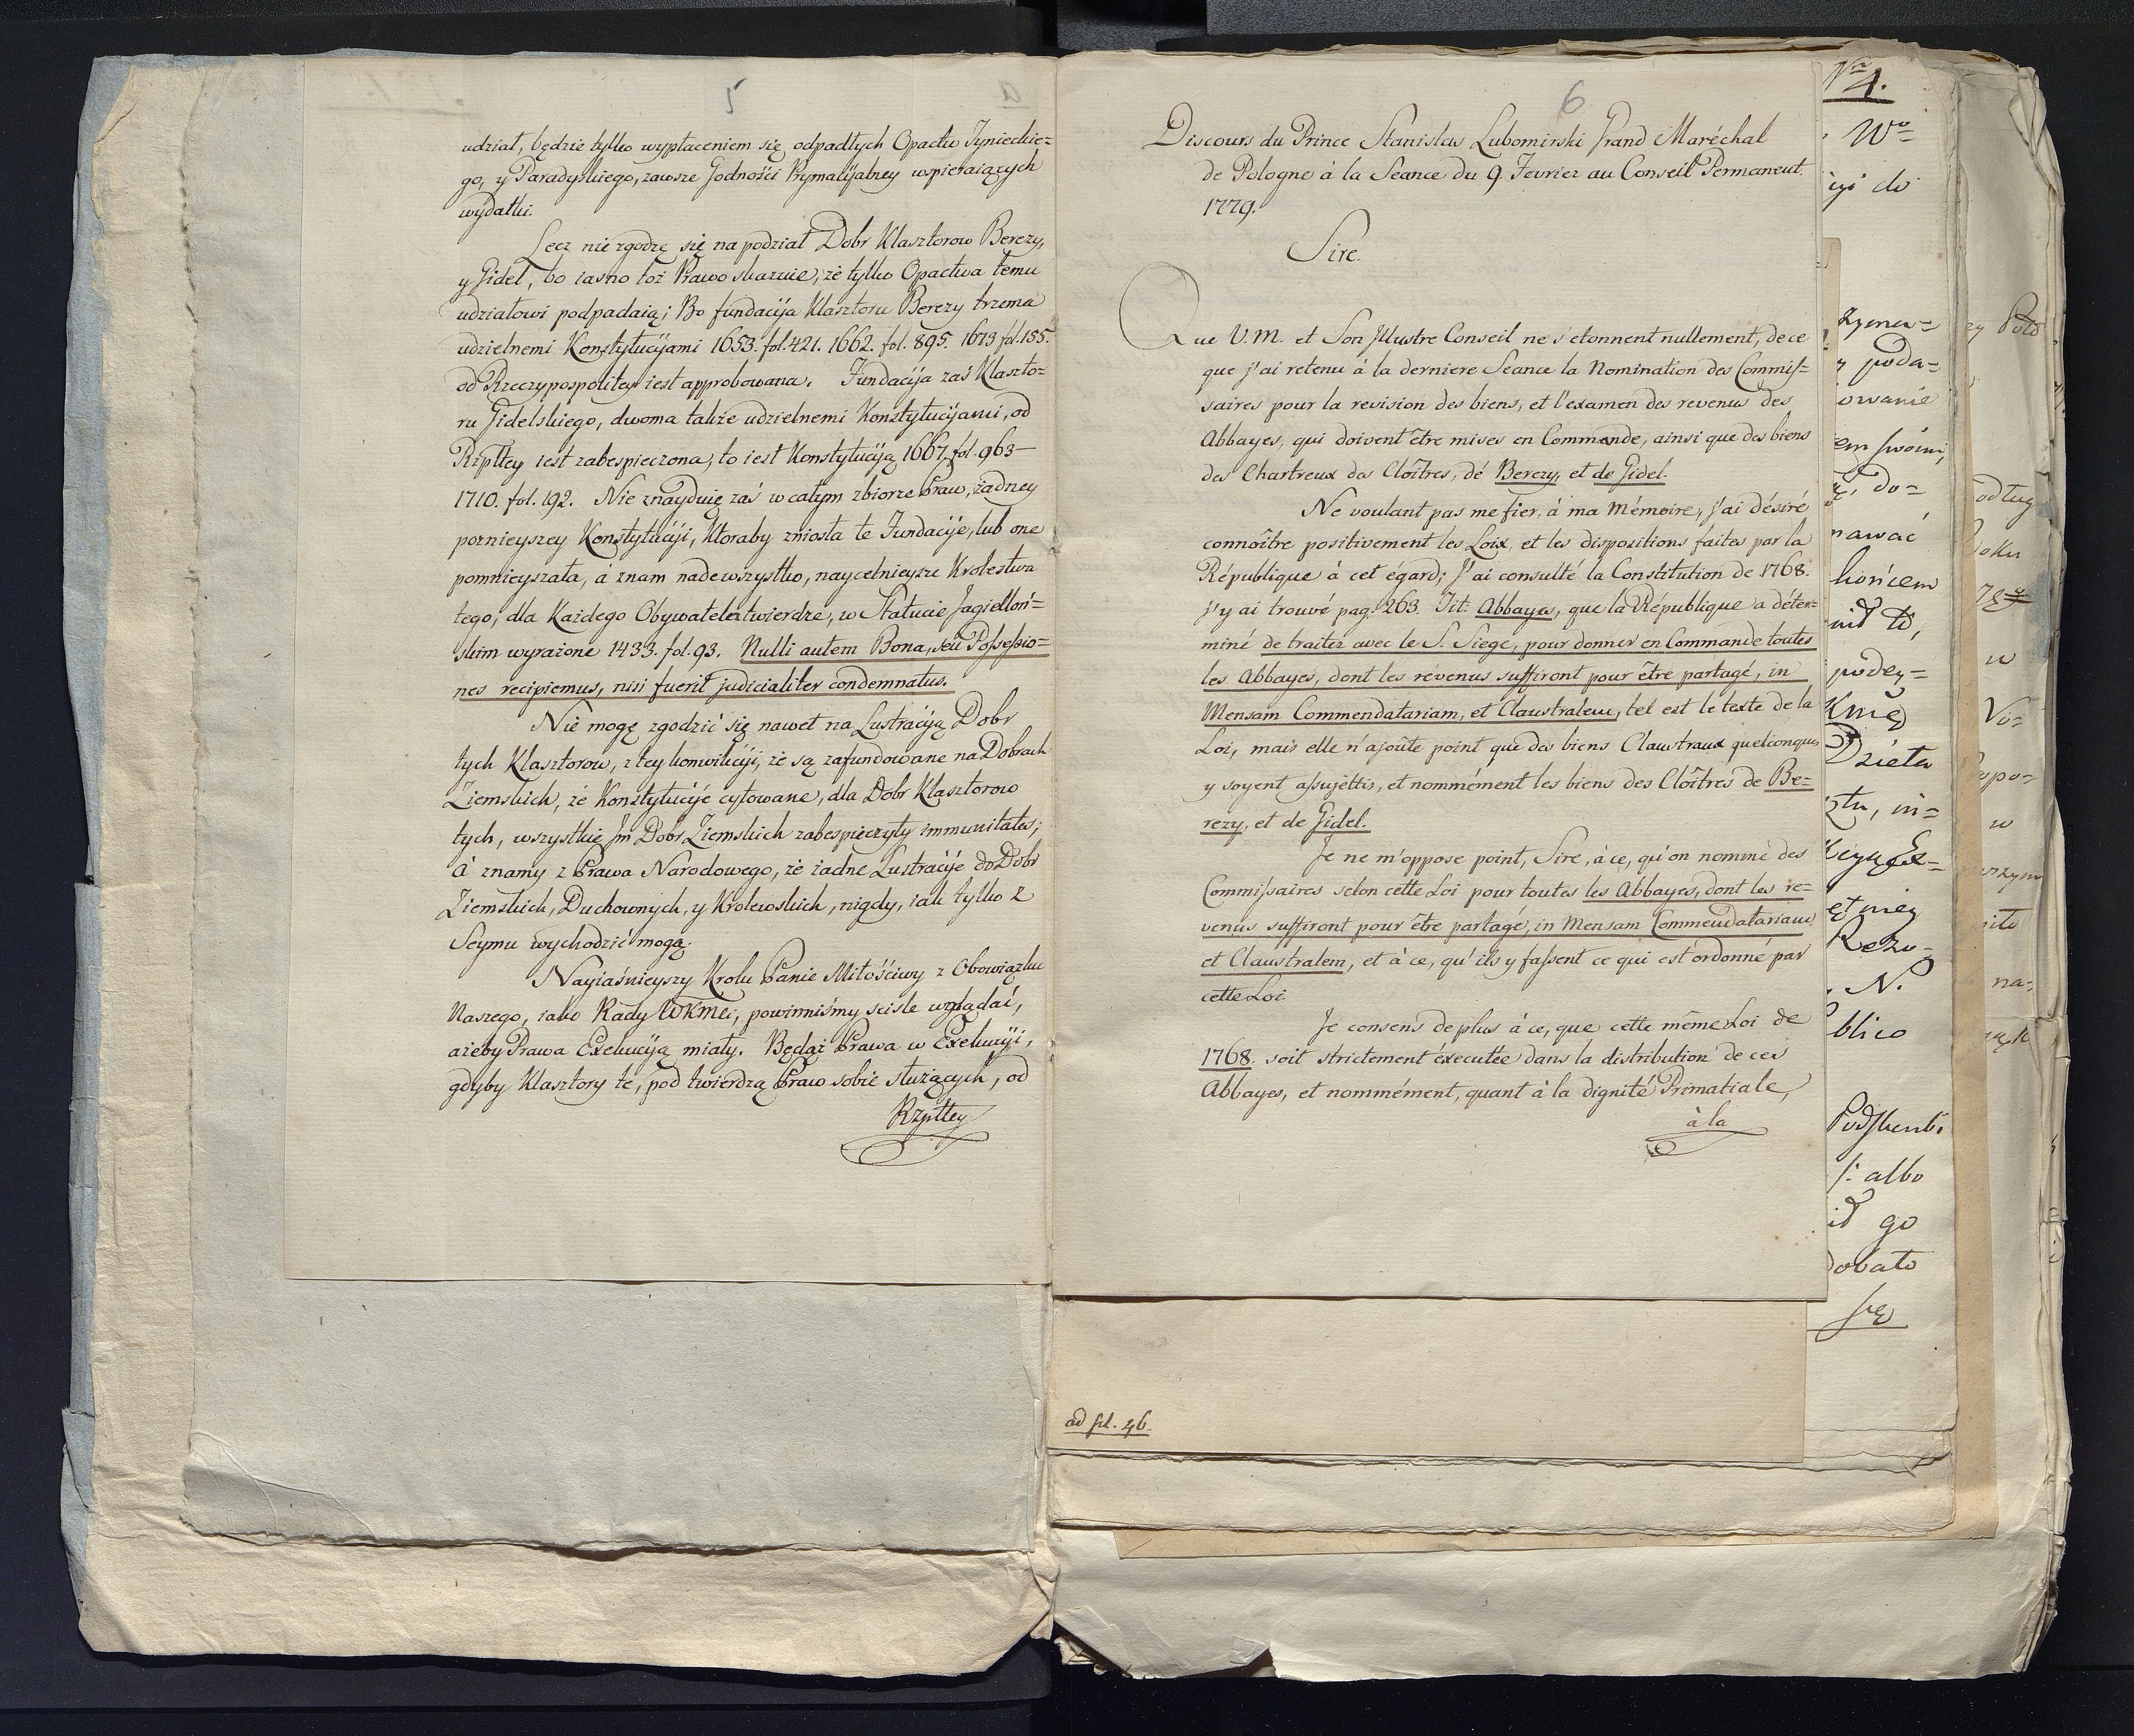 5
udział, będzie tylko wypłaceniem się odpadłych Opactw Tynieckie=
go, y Paradyskiego, zawsze Godności Prymacyalney wspieraiących
wydatki.
Lecz nie zgodzę się na podział Dobr Klasztorow Berezy,
y Gidel, bo iasno toż Prawo skazuie, że tylko Opactwa temu
udziałowi podpadaią; Bo fundacyja Klasztoru Berezy trzema
udzielnemi Konstytucyjami 1653. fol. 421. 1662. fol. 895. 1673 fol. 155.
od Rzeczypospolitey iest approbowana. Fundacyja zaś Klaszto=
ru Gidelskiego, dwoma także udzielnemi Konstytucyjami, od
Rzpltey iest zabespieczona, to iest Konstytucyją 1667. fol. 963 —
1710. fol. 192. Nie znayduię zaś w całym zbiorze Praw, żadney
poznieyszey Konstytucyji, ktoraby zniosła te Fundacyje, lub one
pomnieyszała, á znam nadewszystko, naycelnieysze Krolestwa
tego, dla Każdego Obywatela twierdzé, w Statucie Jagielloń=
skim wyrażone 1433. fol. 93. Nulli autem Bona, seu Possessio=
nes recipiemus, nisi fuerit judicialiter condemnatus.
Nie mogę zgodzić się nawet na Lustracyją Dobr
tych Klasztorow, z tey konwikcyji, że są zafundowane na Dobrach
Ziemskich, że Konstytucyje cytowane, dla Dobr Klasztorow
tych, wszystkie Dobr Ziemskich zabespieczyły immunitates;
á znamy z Prawa Narodowego, że żadne Lustracyje do Dobr
Ziemskich, Duchownych, y Krolewskich, nigdy, iak tylko z
Seymu wychodzić mogą.
Nayiaśnieyszy Krolu Panie Miłościwy z Obowiązku
Naszego, iako Rady WKMci, powinniśmy scisle wglądać,
ażeby Prawa Exekucyją miały. Będąż Prawa w Exekucyji,
gdyby Klasztory te, pod twierdzą Praw sobie służących, od
Rzpltey
6
Discours du Prince Stanislas Lubomirski Grand Maréchal
de Pologne à la Seance du 9. Fevrier au Conseil Permanent.
1779.
Sire.
Que V. M. et Son Jllustre Conseil ne s'etonnent nullement, de ce
que j'ai retenu à la derniere Seance la Nomination des Commis=
saires pour la revision des biens, et l'examen des revenus des
Abbayes, qui doivent être mises en Commande, ainsi que des biens
des Chartreux des Cloîtres, dé Berezy, et de Gidel.
Ne voulant pas me fier, à ma Mémoire, j'ai désiré
connoître positivement les Loix, et les dispositions faites par la
République à cet égard; J'ai consulté la Constitution de 1768.
j'y ai trouvé pag. 263. Tit: Abbayes, que la République a déter=
miné de traiter avec le S. Siege, pour donner en Commande toutes
les Abbayes, dont les révenus suffiront pour être partagé, in
Mensam Commendatariam, et Claustralem, tel est le texte de la
Loi, mais elle n'ajoûte point que des biens Claustraux quelconques
y soyent assujettis, et nommément les biens des Cloîtres de Be=
rezy, et de Gidel.
Je ne m'oppose point, Sire, à ce, qu'on nomme des
Commissaires selon cette Loi pour toutes les Abbayes, dont les re=
venus suffiront pour être partagé, in Mensam Commendatariam
et Claustralem, et à ce, qu'ils y fassent ce qui est ordonné par
cette Loi.
Je consens de plus à ce, que cette même Loi de
1768. soit strictement éxecutée dans la distribution de ces
Abbayes, et nommément, quant à la dignité Primatiale,
à la
ad fol. 46.
Nro 4.
Wo
do
poda=
owanie
swoim,
do=
nawać
końcem
podey=
Dzieła
in=
Rezo=
N.
blico
albo
go
się
podług
w
Vo=
w
na=